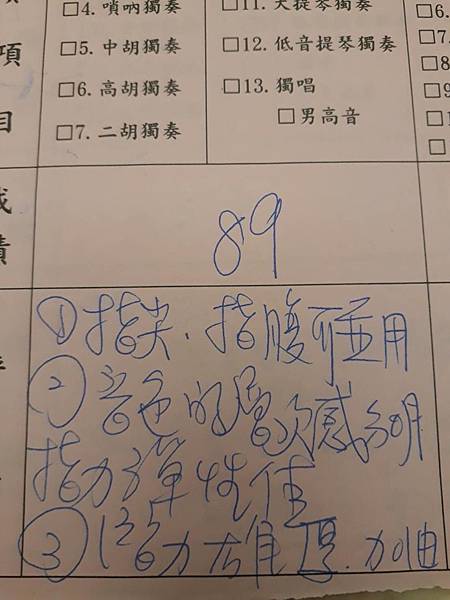 □4. 嗩吶獨奏 □11. 大提琴獨奏 □6.
項 □5. 中胡獨奏 □12. 低音提琴獨奏 □7.
□6. 高胡獨奏 □13. 獨唱 □8
目 □7. 二胡獨奏 □男高音 □9
成績 89
①指尖.指腹可並用
②音色的層次感分明
指力彈性佳
③ 加油